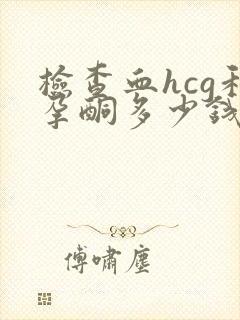 檢查血hcg和
孕酮多少錢
傅嘯塵